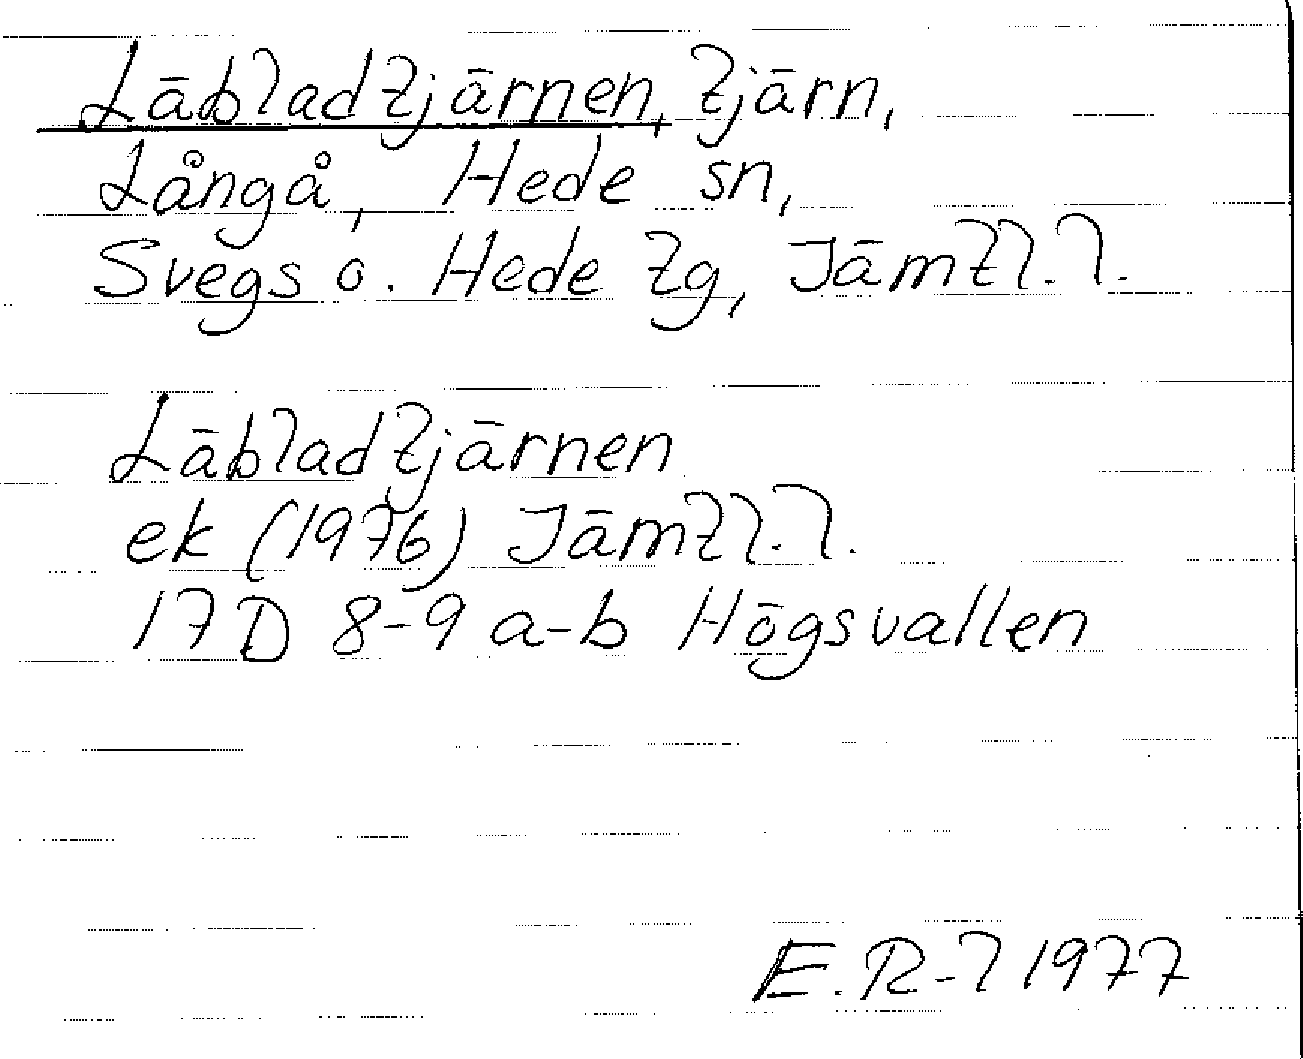 Läbladtjärnen, tjärn,
Långå, Hede sn,
Svegs o. Hede tg, Jämtl. l.
Läbladtjärnen
ek (1976) Jämtl. l.
17D 8-9 a-b Högsvallen
E. R-l 1977